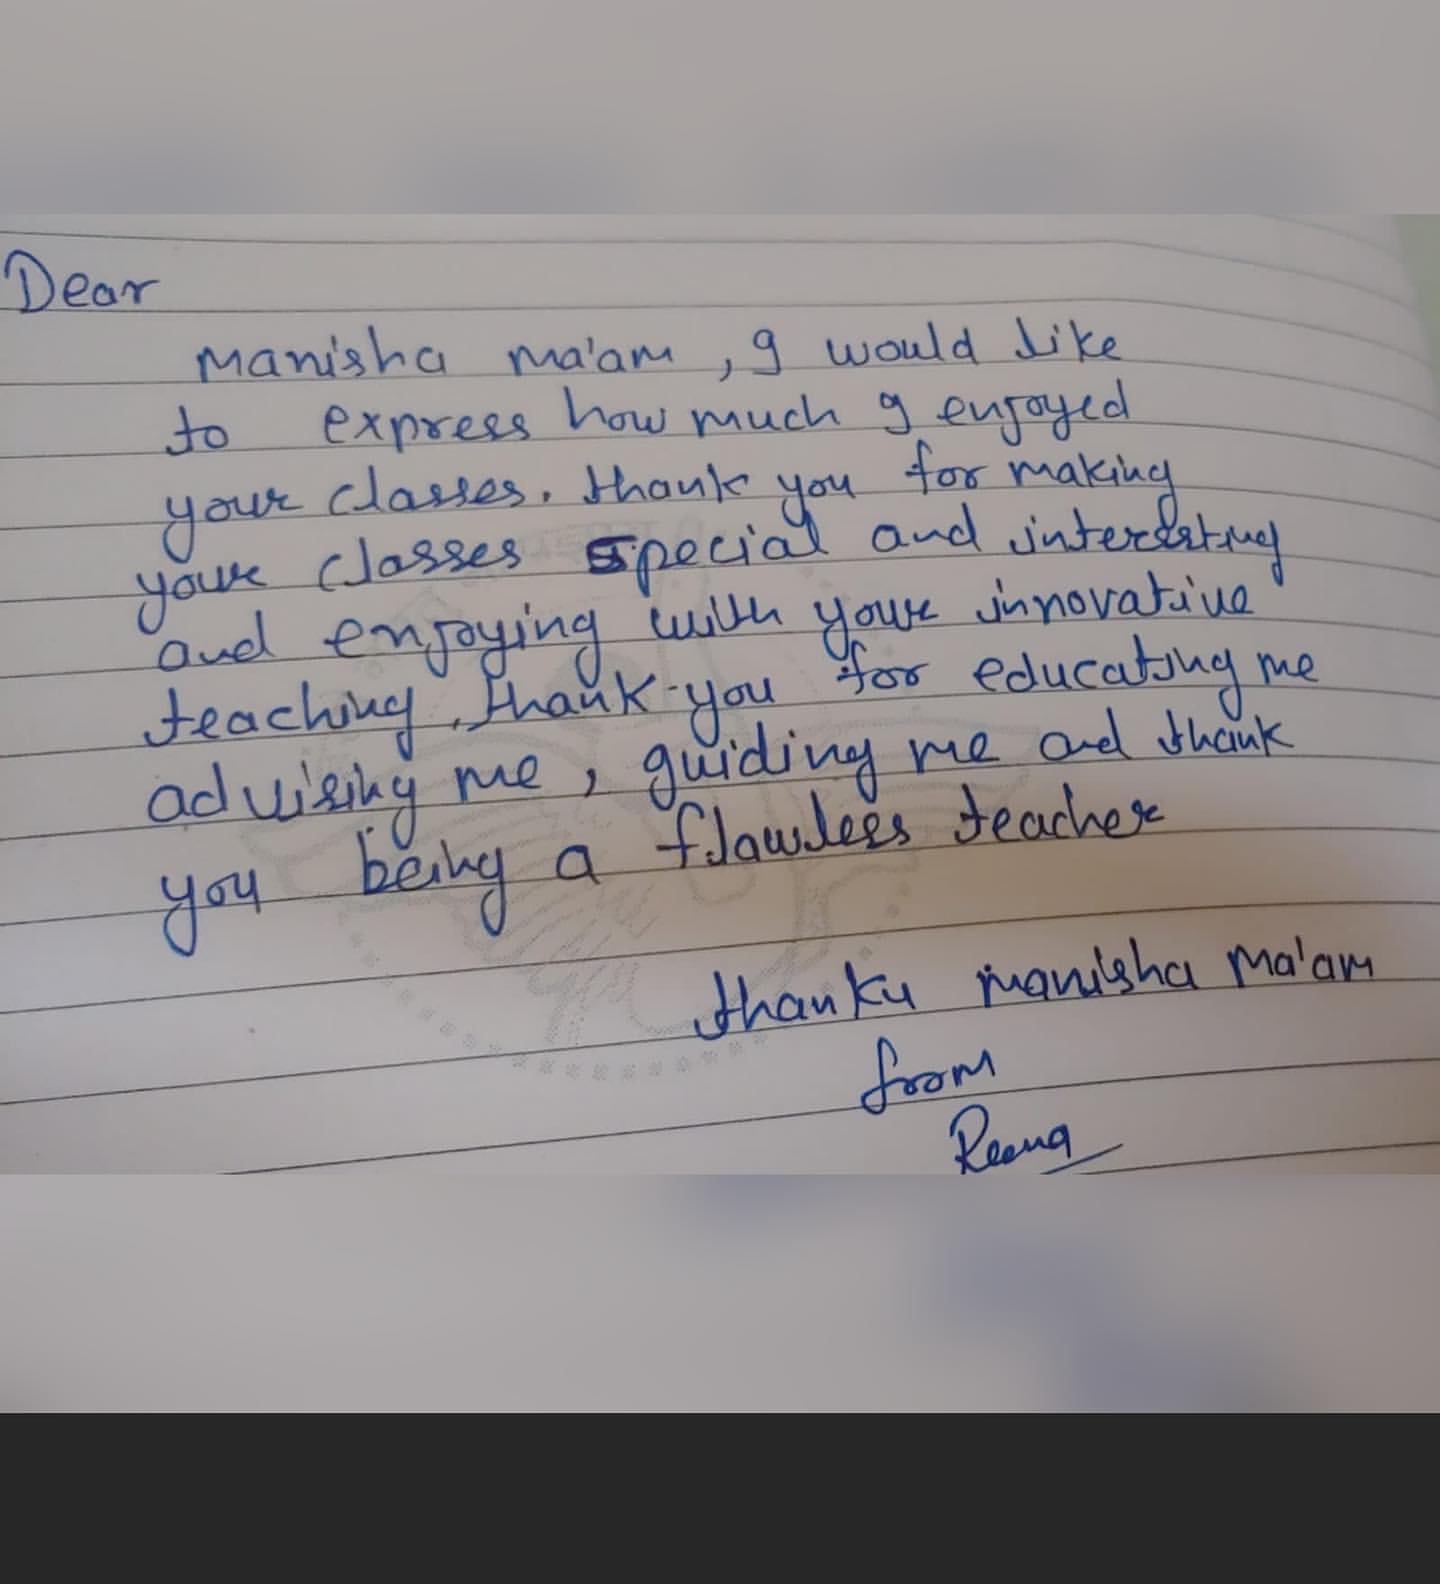 Dear
Manisha ma'am, I would like
to express how much I enjoyed
your classes. thank you for making
your classes special and interesting
and enjoying with your innovative
teaching, thank-you for educating me
advising me, guiding me and thank
you being a flawless teacher
thanku manisha Ma'am
from
Reena